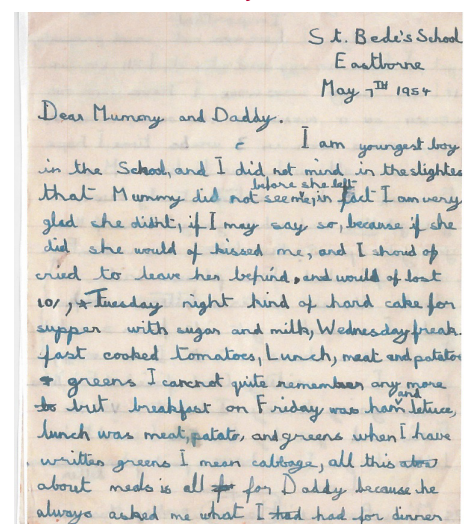 St. Bede's School
Eastborne
May 7TH 1954
Dear Mummy and Daddy.
I am youngest boy
in the School, and I did not mind in the slightes
before she left
that Mummy did not see me, in fact I am very
glad she didht, if I may say so, because if she
did she would of kissed me, and I shoud of
cried to leave her behind, and would of lost
10/, Tuesday night kind of hard cake for
supper with sugar and milk, Wednesday freak-
fast cooked tomatoes, Lunch, meat and potatoe
greens I cancnot quite remember any more
and
but breakfast on Friday was ham letuce,
lunch was meat, potato, and greens when I have
written greens I mean cabbage, all this
about meals is all for Daddy because he
always asked me what I had had for dinner